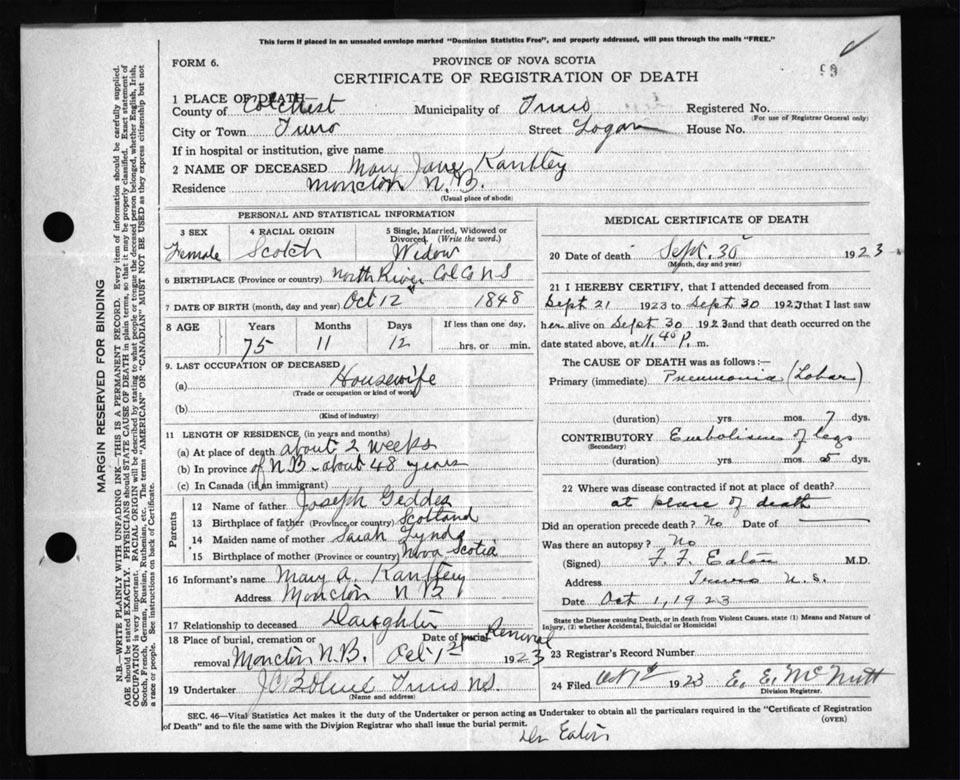 This form if placed in an unsealed envelope marked "Dominion Statistics Free", and properly addressed, will pass through the mails "FREE."
FORM 6.
PROVINCE OF NOVA SCOTIA
CERTIFICATE OF REGISTRATION OF DEATH
1 PLACE OF DEATH
County of Colchest Municipality of Truro Registered No.
(For use of Registrar General only)
City or Town Truro Street Logan House No.
If in hospital or institution, give name
2 NAME OF DECEASED Mary Jane
Residence Moncton N.B.
(Usual place of abode)
MARGIN RESERVED FOR BINDING
N.B.—WRITE PLAINLY WITH UNFADING INK—THIS IS A PERMANENT RECORD. Every item of information should be carefully supplied.
AGE should be stated EXACTLY. PHYSICIANS should STATE CAUSE OF DEATH in plain terms, so that it may be properly classified. Exact statement of
OCCUPATION is very important. RACIAL ORIGIN will be described by stating to what people or tongue the deceased person belonged, whether English, Irish,
Scotch, French, German, Russian, Ruthenian, etc. The terms "AMERICAN" OR "CANADIAN" MUST NOT BE USED as they express citizenship but not
a race or people. See instructions on back of Certificate.
PERSONAL AND STATISTICAL INFORMATION
3 SEX 4 RACIAL ORIGIN 5 Single, Married, Widowed or
Divorced (Write the word.)
Female Scotch Widow
6 BIRTHPLACE (Province or country) North River Col Co N S
7 DATE OF BIRTH (month, day and year) Oct 12 1848
8 AGE Years Months Days If less than one day,
75 11 12 hrs. or min.
9. LAST OCCUPATION OF DECEASED
(a) Housewife
(Trade or occupation or kind of work)
(b)
(Kind of industry)
11 LENGTH OF RESIDENCE (in years and months)
(a) At place of death about 2 weeks
(b) In province of N.B. about 48 years
(c) In Canada (if an immigrant)
Parents
12 Name of father Joseph Geddes
13 Birthplace of father (Province or country) Scotland
14 Maiden name of mother Sarah Lynds
15 Birthplace of mother (Province or country) Nova Scotia
16 Informant's name Mary A.
Address Moncton N B
17 Relationship to deceased Daughter
18 Place of burial, cremation or Date of burial Removal
removal Moncton N.B. Oct 1st 1923
19 Undertaker Truro N.S.
(Name and address)
MEDICAL CERTIFICATE OF DEATH
20 Date of death Sept. 30 1923
(Month, day and year)
21 I HEREBY CERTIFY, that I attended deceased from
Sept 21 1923 to Sept 30 1923 that I last saw
her alive on Sept 30 1923 and that death occurred on the
date stated above, at 11.40 P. m.
The CAUSE OF DEATH was as follows:—
Primary (immediate) Pneumonia (Lobar)
(duration) yrs mos. 7 dys.
CONTRIBUTORY Embolism of legs
(Secondary)
(duration) yrs mos 5 dys.
22 Where was disease contracted if not at place of death?
at place of death
Did an operation precede death? No Date of
Was there an autopsy? No
(Signed) F. F. Eaton M.D.
Address Truro N.S.
Date Oct 1, 1923
State the Disease causing Death, or in death from Violent Causes. state (1) Means and Nature of
Injury, (2) whether Accidental, Suicidal or Homicidal
23 Registrar's Record Number
24 Filed Oct 1st 1923 E. E. McNutt
Division Registrar.
SEC. 46—Vital Statistics Act makes it the duty of the Undertaker or person acting as Undertaker to obtain all the particulars required in the "Certificate of Registration
of Death" and to file the same with the Division Registrar who shall issue the burial permit. (OVER)
Dr Eaton